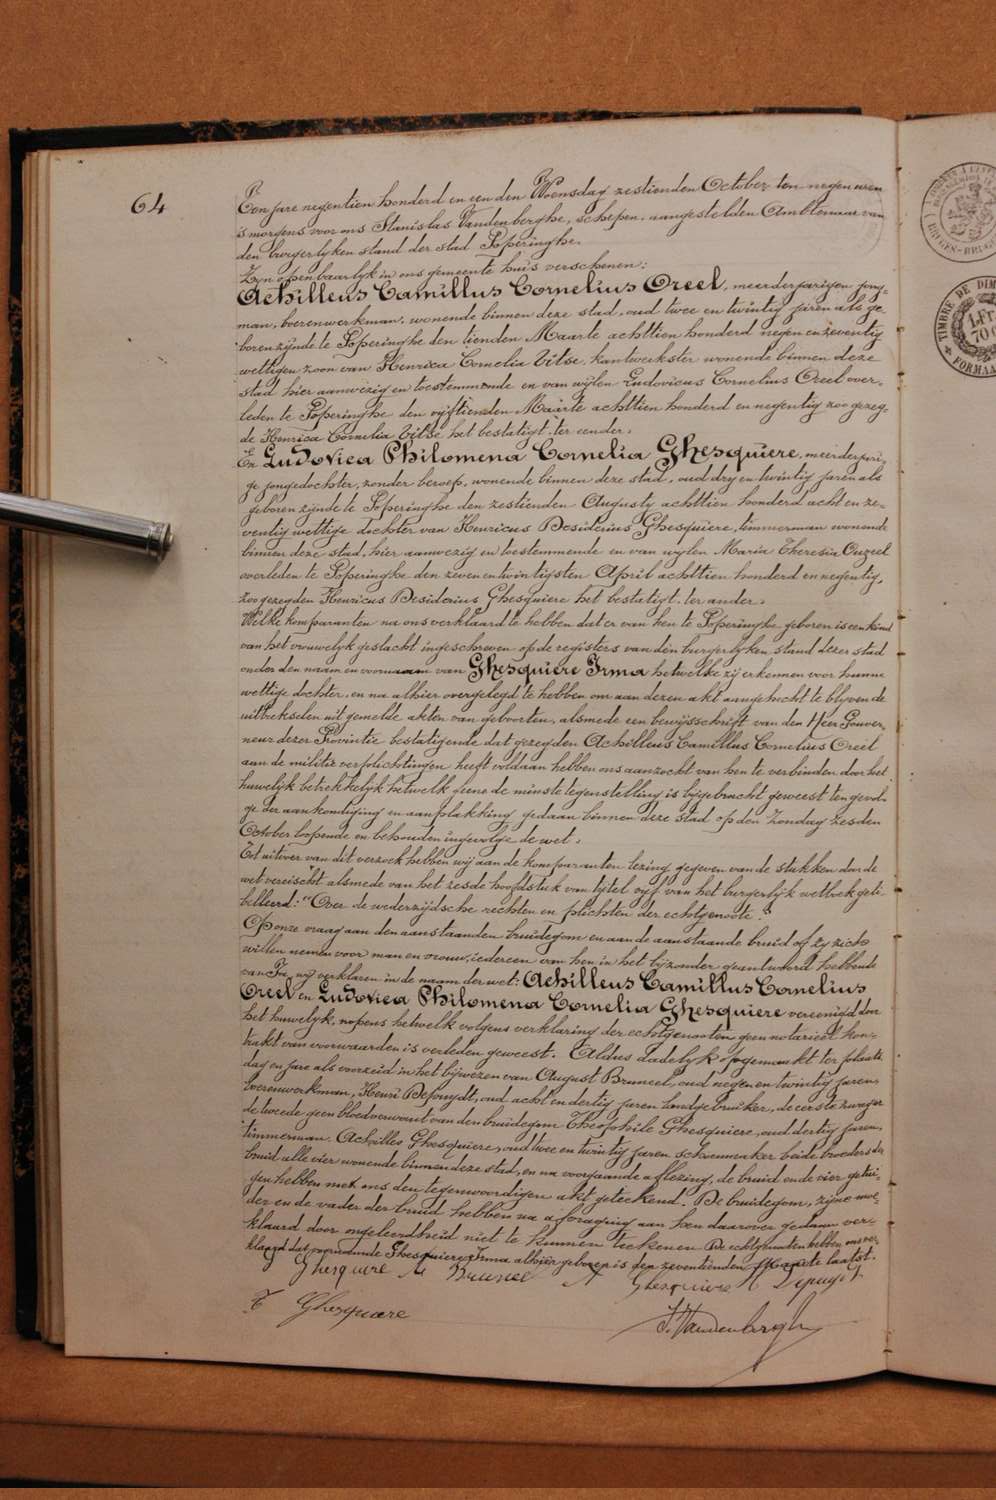 64
Een jare negentien honderd en een den Woensdag zestienden October ten negen uren
's morgens voor ons Stanislas Vandenberghe, schepen, aangestelden Ambtenaar van
den burgerlyken stand der stad Poperinghe.
Zyn openbaarlyk in ons gemeente huis verschenen:
Achilleus Camillus Cornelius Oreel, meerderjarigen jong-
man, boerenwerkman, wonende binnen deze stad, oud twee en twintig jaren als ge-
boren zijnde te Poperinghe den tienden Maarte achttien honderd negen en zeventig
wettigen zoon van Henrica Cornelia Vitse, kantwerkster wonende binnen deze
stad hier aanwezig en toestemmende en van wijlen Ludovicus Cornelius Oreel over-
leden te Poperinghe den vijftienden Maarte achttien honderd en negentig zoo gezeg-
de Henrica Cornelia Vitse het bestatigt. ter eender.
En Ludovica Philomena Cornelia Ghesquiere, meerderjari-
ge jongedochter, zonder beroep, wonende binnen deze stad, oud dry en twintig jaren als
geboren zynde te Poperinghe den zestienden Augusty achttien honderd acht en ze-
ventig wettige dochter van Henricus Desiderius Ghesquiere, timmerman wonende
binnen deze stad, hier aanwezig en toestemmende en van wylen Maria Theresia Onzeel
overleden te Poperinghe den zeven en twintigsten April achttien honderd en negentig,
zoo gezegden Henricus Desiderius Ghesquiere het bestatigt. ter ander.
Welke komparanten na ons verklaard te hebben dat er van hen te Poperinghe geboren is een kind
van het vrouwelyk geslacht ingeschreven op de registers van den burgerlyken stand dezer stad
onder den naam en voornaam van Ghesquiere Irma hetwelke zij erkennen voor hunne
wettige dochter, en na alhier overgelegd te hebben om aan dezen akt aangehecht te blyven de
uittreksels uit gemelde akten van geboorten, alsmede een bewysschrift van den Heer Gouver-
neur dezer Provintie bestatigende dat gezegden Achilleus Camillus Cornelius Oreel
aan de militie verplichtingen heeft voldaan hebben ons aanzocht van hen te verbinden door het
huwelijk betrekkelijk hetwelk geene de minste tegenstelling is bygebracht geweest ten gevol-
ge der aankondiging en aanplakking gedaan binnen deze stad op den Zondag zesden
October loopende en behouden ingevolge de wet.
Tot uitvoer van dit verzoek hebben wij aan de komparanten lezing gegeven van de stukken door de
wet vereischt alsmede van het zesde hoofdstuk van tytel vyf van het burgerlyk wetboek geti-
telleerd: "Over de wederzijdsche rechten en plichten der echtgenoote".
Op onze vraag aan den aanstaanden bruidegom en aan de aanstaande bruid of zy zich
willen nemen voor man en vrouw, iedereen van hen in het bijzonder geantwoord hebbende
van Ja, wij verklaren in de naam der wet: Achilleus Camillus Cornelius
Oreel en Ludovica Philomena Cornelia Ghesquiere vereenigd door
het huwelyk, nopens hetwelk volgens verklaring der echtgenooten geen notarieel kon-
trakt van voorwaarden is verleden geweest. Aldus dadelyk opgemaakt ter plaats
dag en jare als voorzeid in het bijwezen van August Bruneel, oud negen en twintig jaren,
boerenwerkman, Henri Depuydt, oud acht en dertig jaren landgebruiker, de eerste zwager
de tweede geen bloedverwant van den bruidegom Theophile Ghesquiere, oud dertig jaren,
timmerman. Achilles Ghesquiere, oud twee en twintig jaren schoenmaker beide broeders der
bruid alle vier wonende binnen deze stad, en na voorgaande aflezing, de bruid en de vier getui-
gen hebben met ons den tegenwoordigen akt geteekend. De bruidegom, zijne moe-
der en de vader der bruid hebben na afvraging aan hen daarover gedaan ver-
klaard door ongeleerdheid niet te kunnen teekenen. De echtgenooten hebben ons ver-
klaard dat voornoemde Ghesquiere Irma alhier geboren is den zeventienden Maarte laatst.
Ghesquire A Bruneel A Ghesquiere H Depuydt
T Ghesquiere
S. Vandenberghe
TIMBRE DE DIM
1 Fr
70
FORMA
BRUGES-BRUG